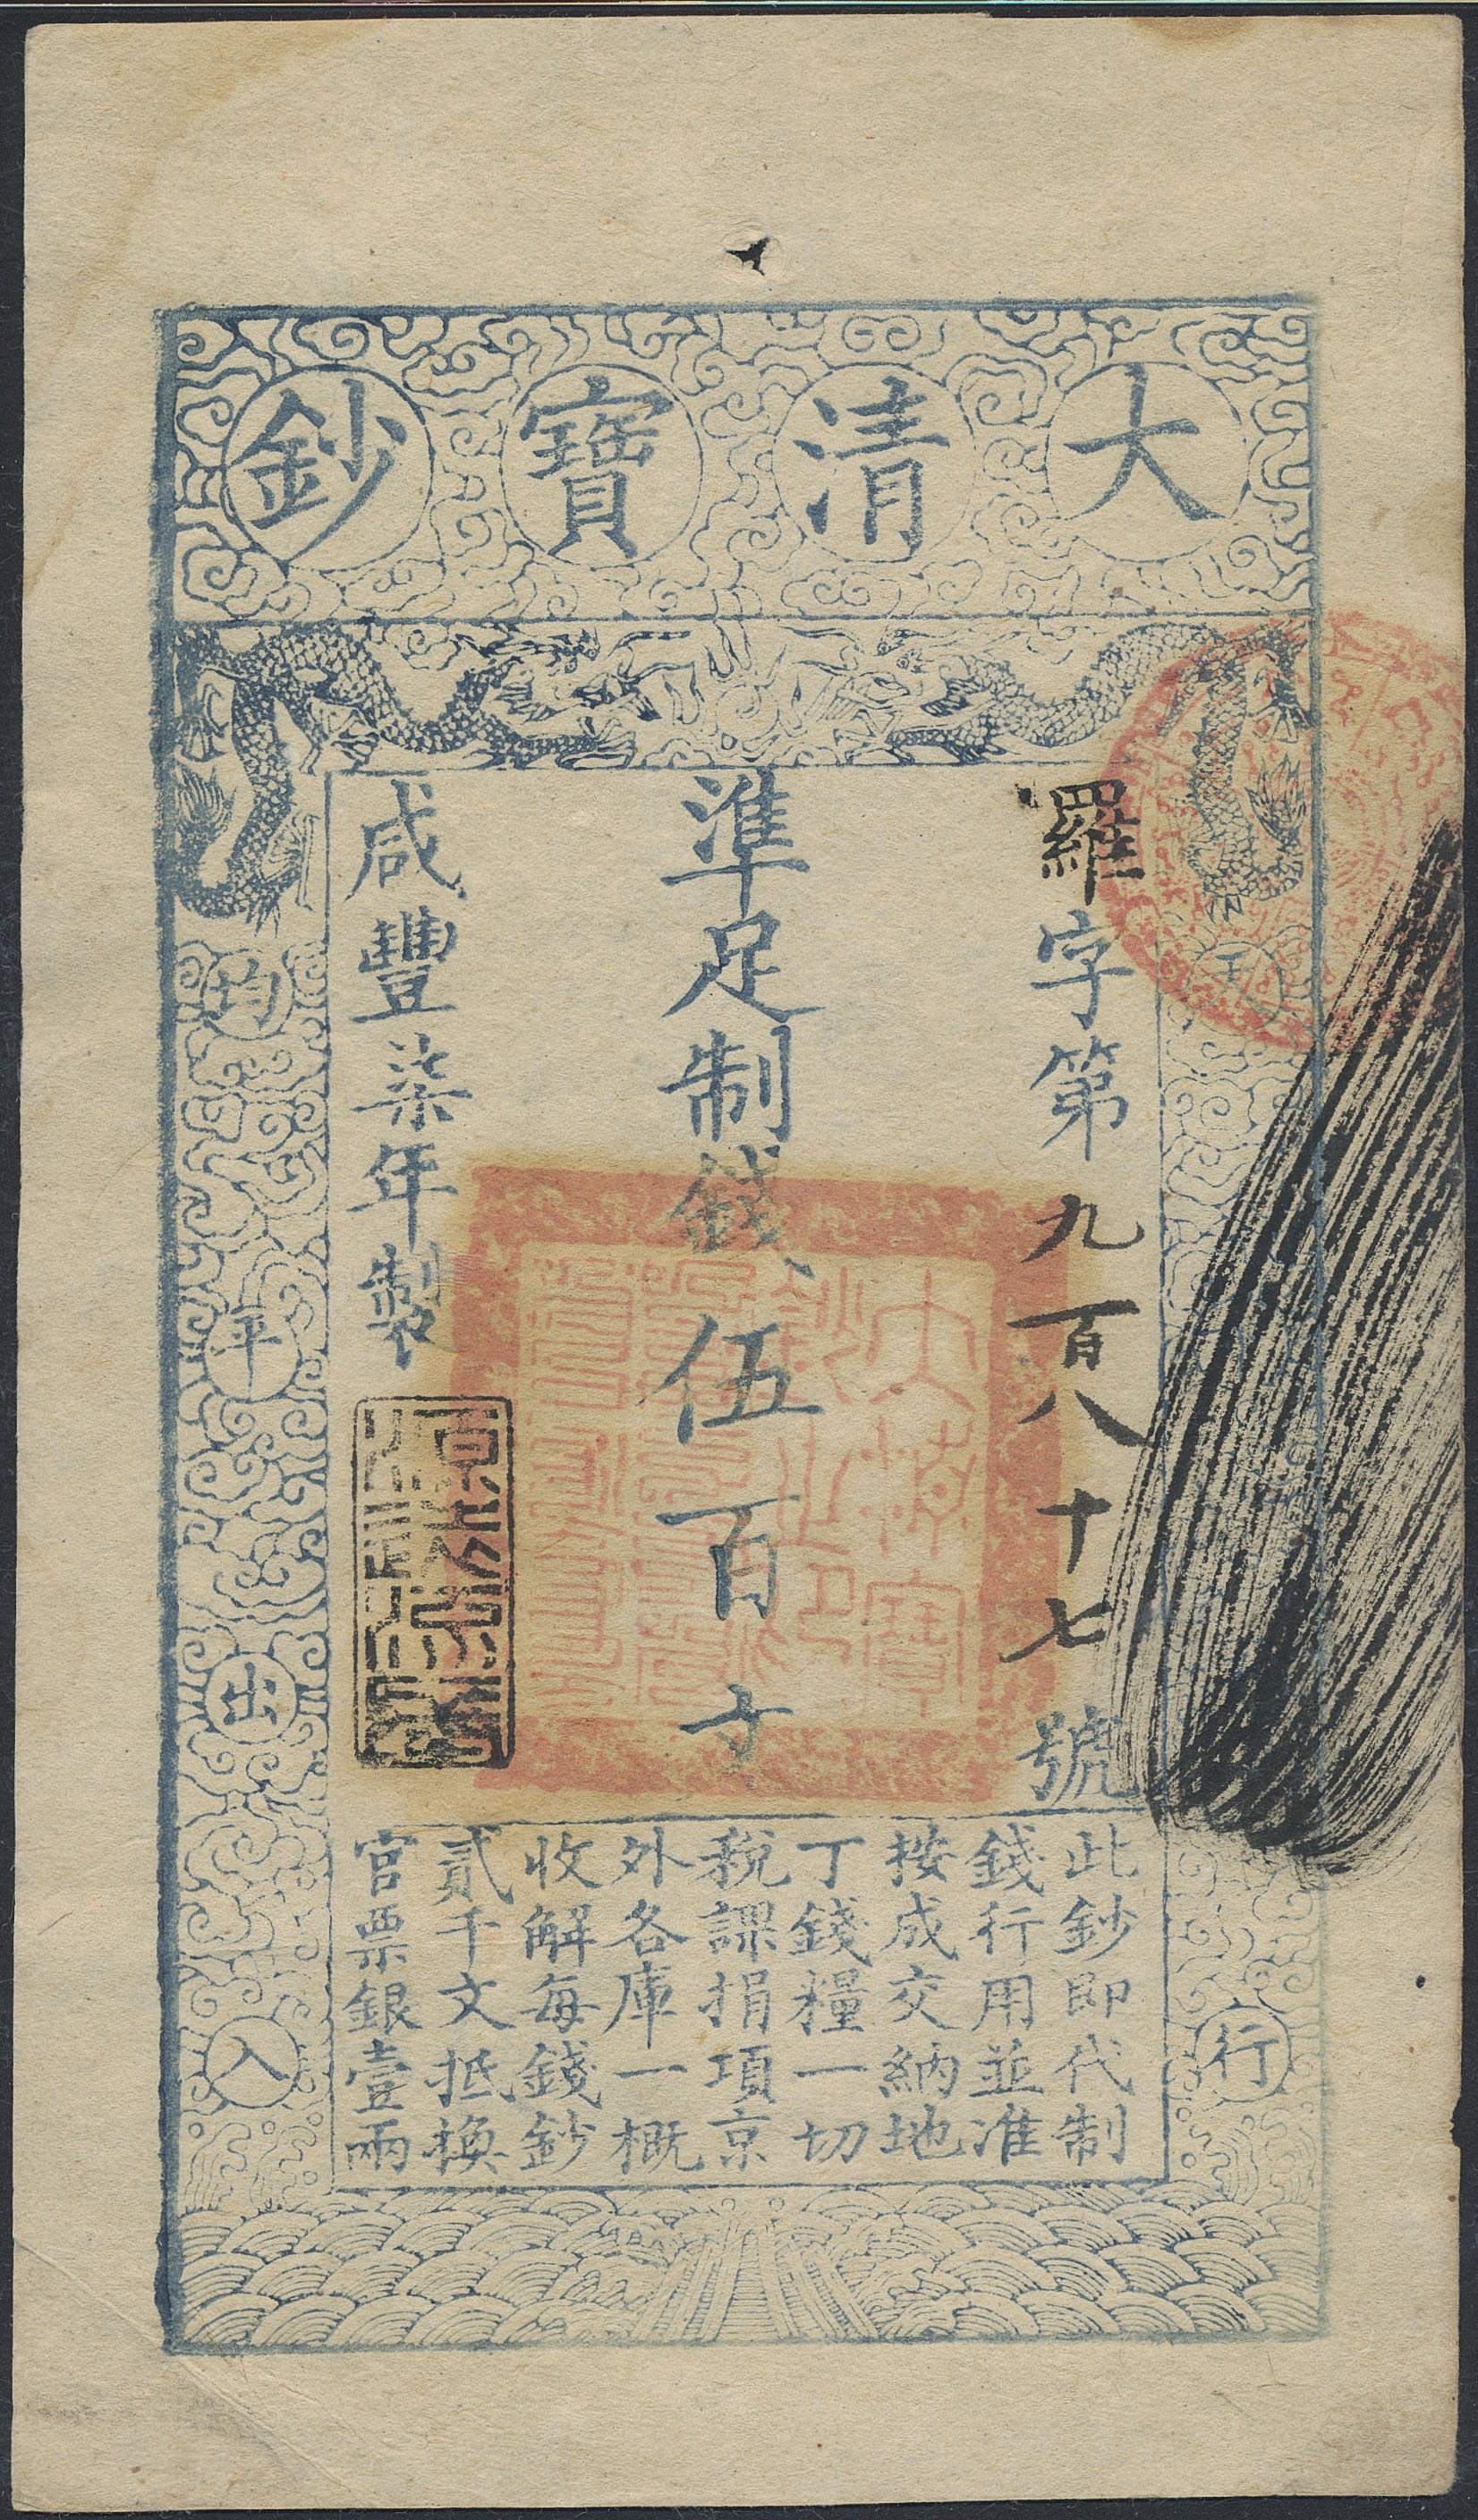 大清寶鈔
羅字第九百八十七號
準足制錢伍百文
咸豐柒年製
天
行
均
平
出
入
此鈔即代制
錢行用並准
按成交納地
丁錢糧一切
稅課捐項京
外各庫一概
收解每錢鈔
貳千文抵換
官票銀壹兩
大清寶
鈔之印